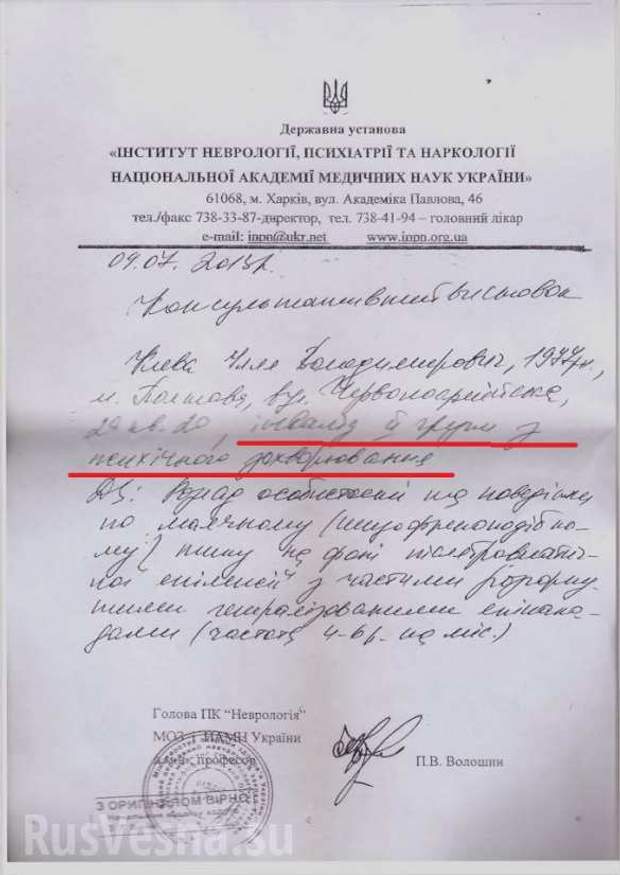 Державна установа
«ІНСТИТУТ НЕВРОЛОГІЇ, ПСИХІАТРІЇ ТА НАРКОЛОГІЇ
НАЦІОНАЛЬНОЇ АКАДЕМІЇ МЕДИЧНИХ НАУК УКРАЇНИ»
61068, м. Харків, вул. Академіка Павлова, 46
тел./факс 738-33-87-директор, тел. 738-41-94 – головний лікар
e-mail: inpn@ukr.net www.inpn.org.ua
09.07.2013р.
Консультативний висновок
Ілля Володимирович, 1977р.н.,
м. Полтава, вул. Червоноармійська,
кв. 20, інвалід ІІ групи з
психічного захворювання
Дз: Розлад особистості та поведінки
по маячному (шизофреноподібно-
му) типу на фоні післятравматич-
ної епілепсії з частими
генералізованими епінапа-
дами (частота 4-6р. на міс.)
Голова ПК “Неврологія”
МОЗ і НАМН України
професор
П.В. Волошин
З ОРИГІНАЛОМ ВІРНО
RusVesna.su